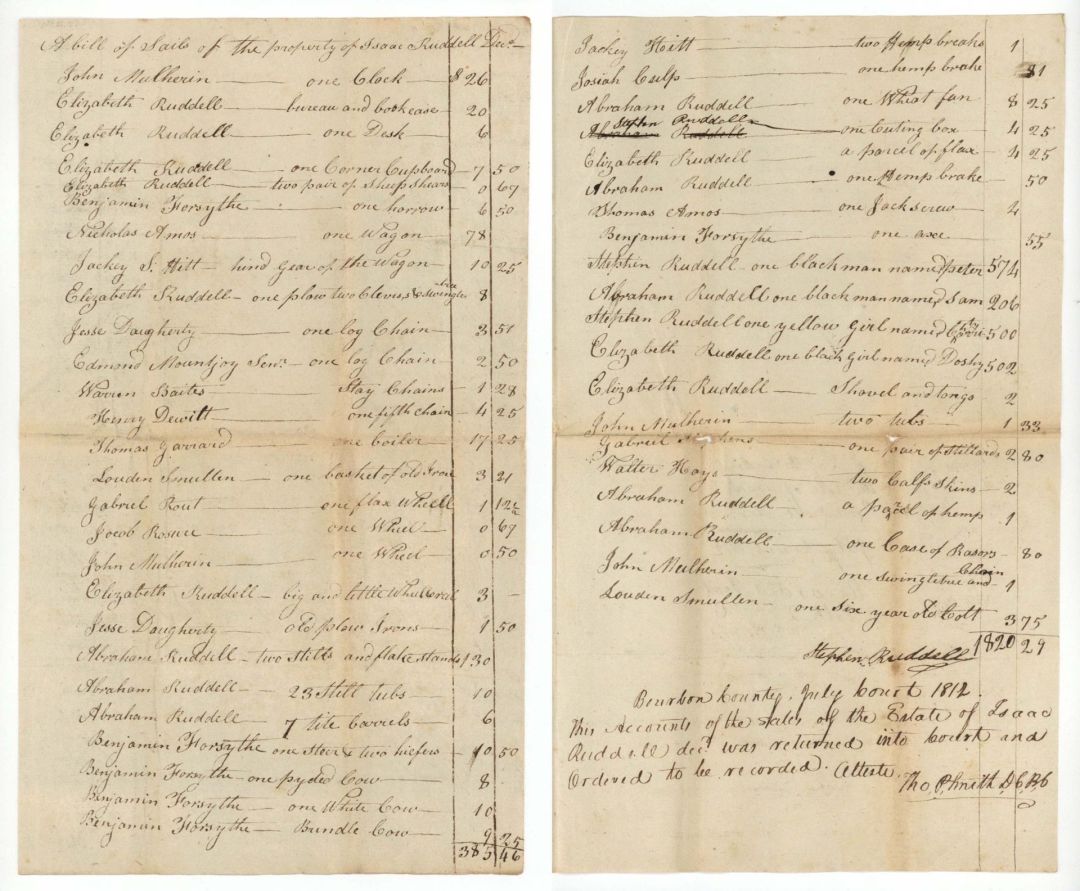 A bill of Sails of the property of Isaac Ruddell Decd
John Mulherin — one Clock — $ 26
Elizabeth Ruddell — bureau and book case — 20
Elizabeth Ruddell — one Desk — 6
Elizabeth Ruddell — one Corner Cupboard — 7 50
Elizabeth Ruddell — two pair of Sheep Shears — 0 69
Benjamin Forsythe — one harrow — 6 50
Nicholas Amos — one Wagon — 78
Jackey S. Hitt — hind Gear of the Wagon — 10 25
Elizabeth Ruddell — one plow two Cleveses & swingle tree 8
Jesse Daugherty — one log Chain — 3 51
Edmond Mountjoy Senr — one log Chain — 2 50
Warren Baites — Stay Chains — 1 28
Henry Dewitt — one fifth chain — 4 25
Thomas Garrard — one boiler — 17 25
Louden Smullen — one basket of old Iron 3 21
Gabriel Rout — one flax Wheell 1 12½
Jacob — one Wheel 0 69
John Mulherin — one Wheel — 0 50
Elizabeth Ruddell — big and little Wheel & real 3 —
Jesse Daugherty — old plow Irons — 1 50
Abraham Ruddell — two Stills and flake stands 130
Abraham Ruddell — 23 Still tubs — 10
Abraham Ruddell — 7 tite barrels — 6
Benjamin Forsythe one Steer & two hiefers — 40 50
Benjamin Forsythe — one pyded Cow — 8
Benjamin Forsythe — one White Cow — 10
Benjamin Forsythe — Brindle Cow — 9 25
385 46
Jackey Hitt — two Hemp breaks 1
Josiah Culp — one hemp brake 81
Abraham Ruddell — one Wheat fan 8 25
Abraham Ruddell Stephen Ruddell — one Cuting box — 4 25
Elizabeth Ruddell — a parcel of flax — 4 25
Abraham Ruddell — one Hemp brake — 50
Thomas Amos — one Jack screw — 4
Benjamin Forsythe — one axe — 55
Stephen Ruddell one black man named peter 574
Abraham Ruddell one black man named Sam 206
Stephen Ruddell one yellow Girl named 500
Elizabeth Ruddell one black Girl named Doshy 502
Elizabeth Ruddell — Shovel and tongs — 2
John Mulherin — two tubs — 1 33
Gabriel — one pair of Stillards 2 80
Walter Hays — two Calf Skins — 2
Abraham Ruddell — a parcel of hemp — 1
Abraham Ruddell — one Case of Rasors — 80
John Mulherin — one swingletree and Chain — 1
Louden Smullen — one Six year old Colt 375
1820 29
Stephen Ruddell
Bourbon County, July Court 1812.
This Accounts of the sales of the Estate of Isaac
Ruddell decd was returned into Court and
Ordered to be recorded. Atteste.
Tho P Smith D C B C